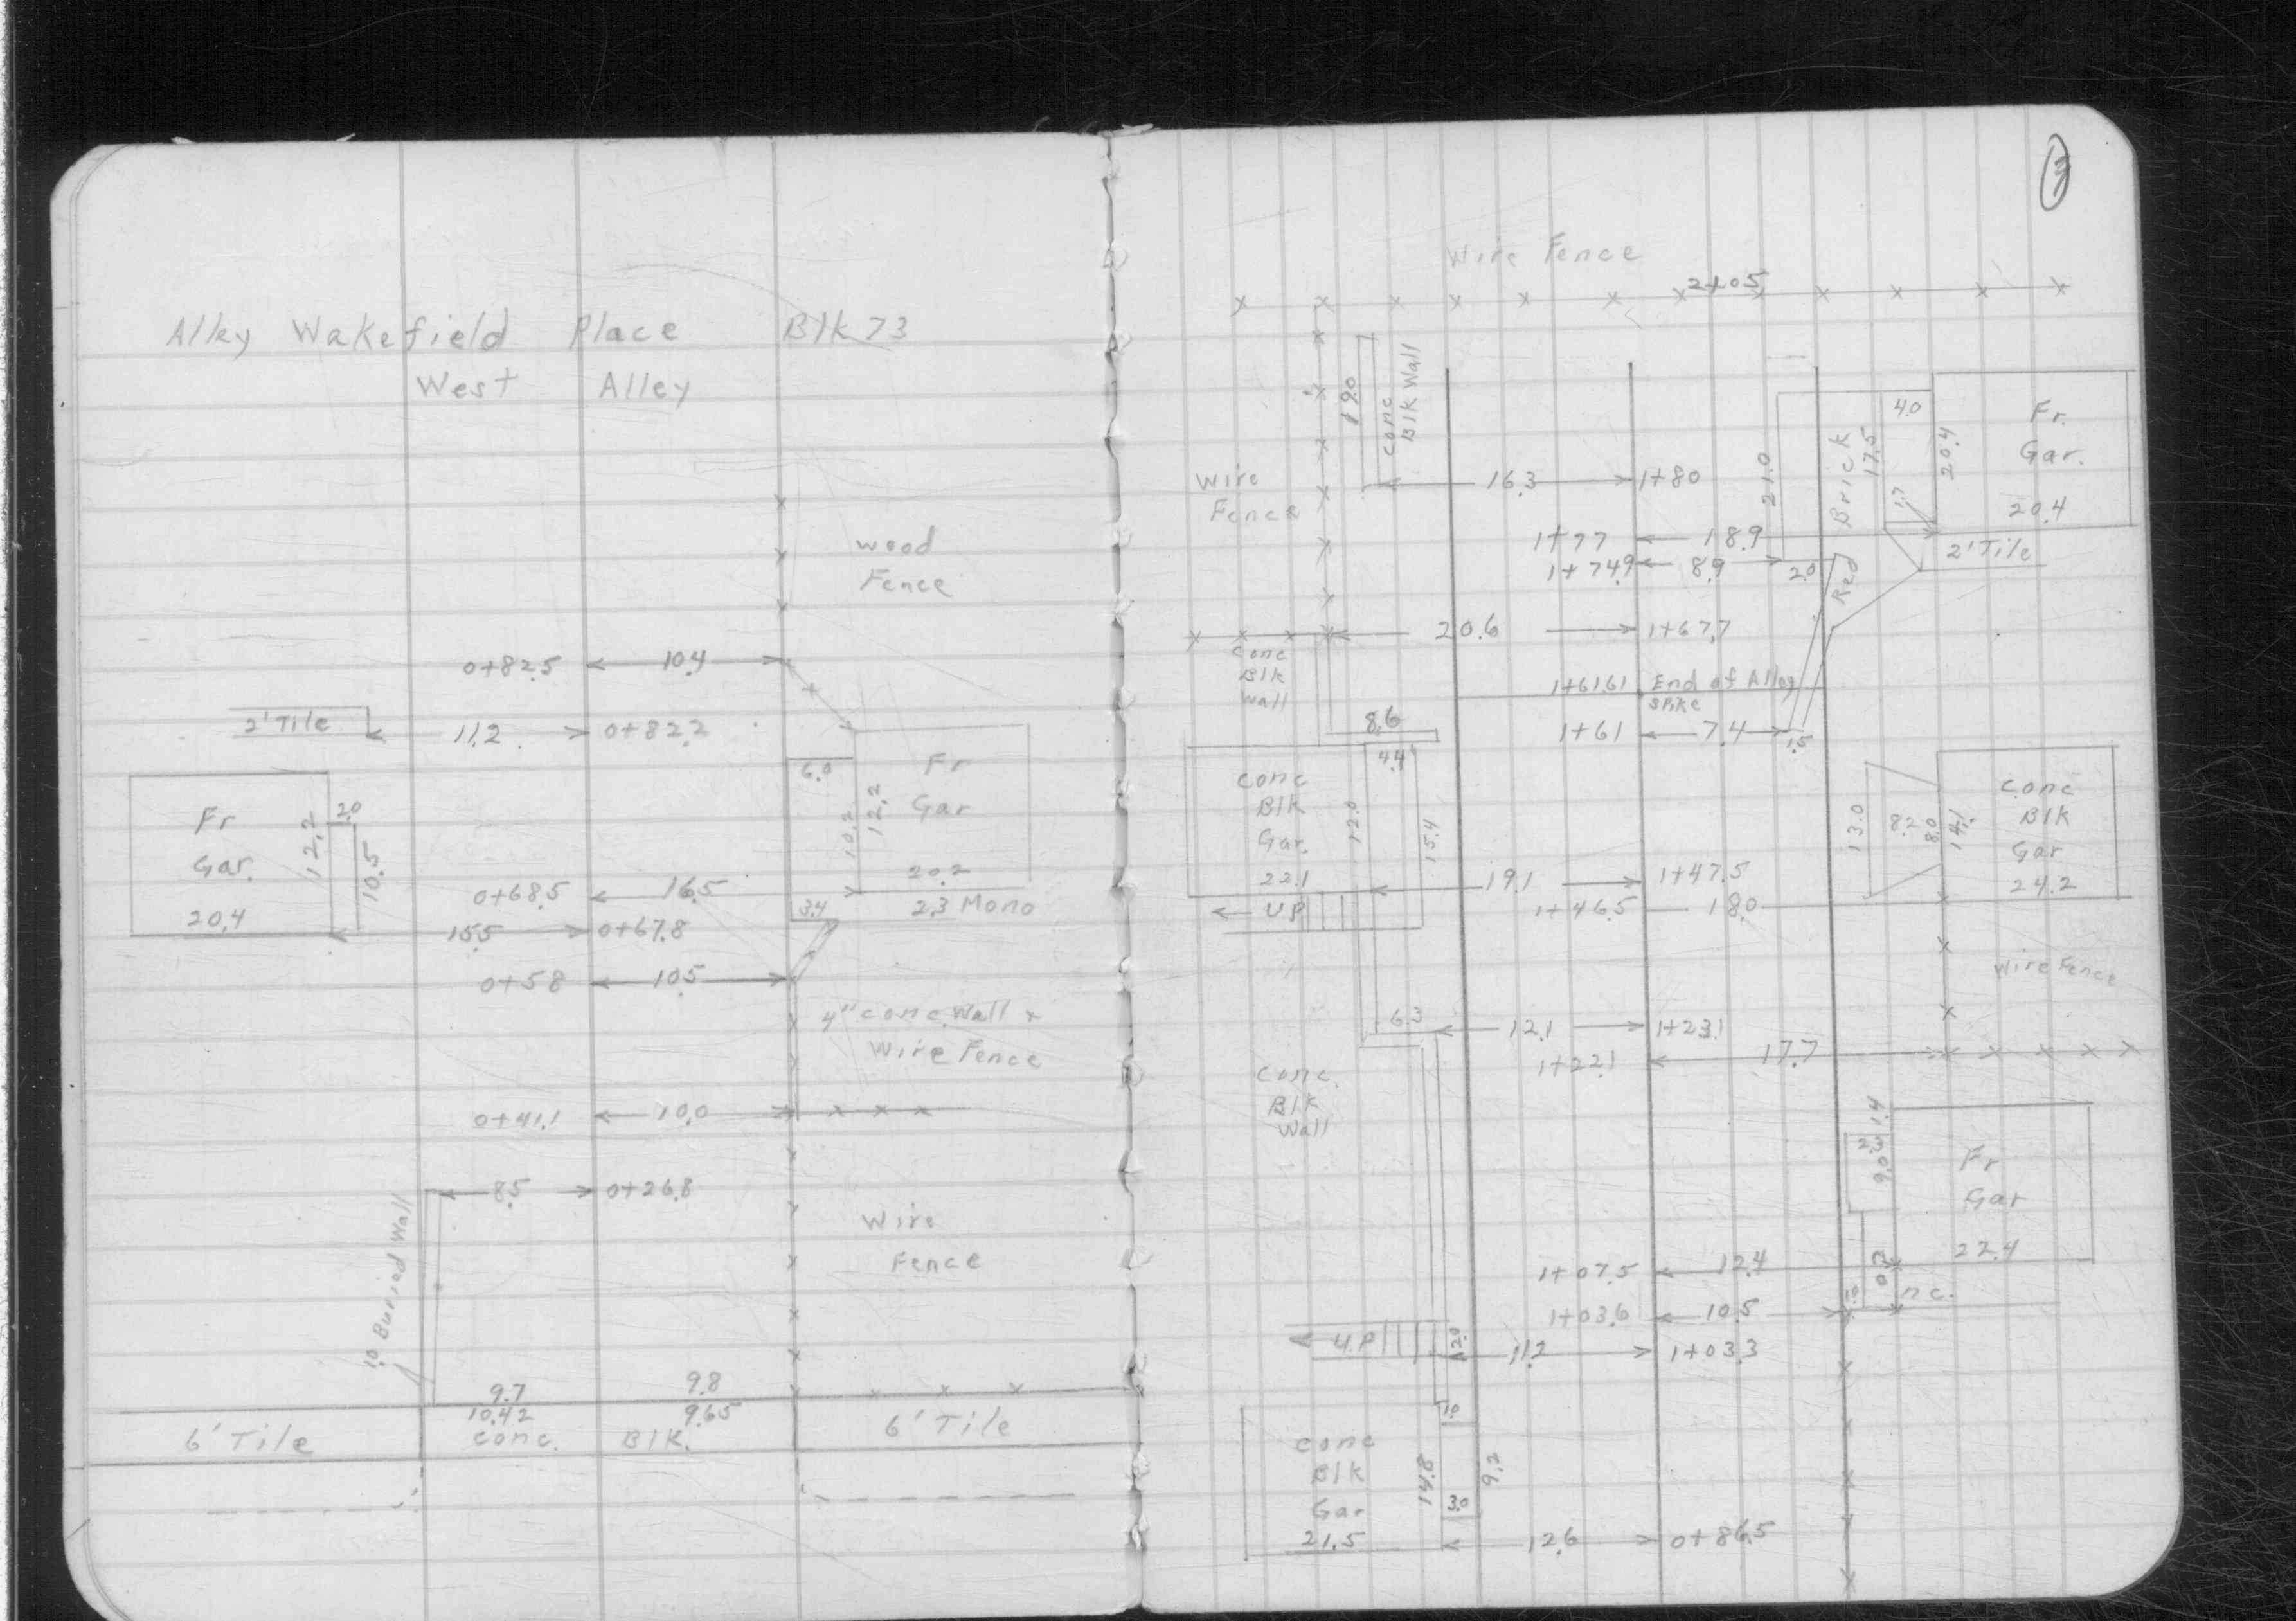 Alley Wakefield Place Blk 73
West Alley
Wood
Fence
0+82.5 10.4
2' Tile 11.2 0+82.2
6.0 Fr
Gar
10.2 12.2
20.2
Fr
Gar.
20.4
12.2 2.0
10.5
0+68.5 16.5
3.4 2.3 Mono
15.5 0+67.8
0+58 10.5
4" Conc. Wall +
Wire Fence
0+41.1 10.0
8.5 0+26.8
1.0 Buried Wall
Wire
Fence
9.7 9.8
10.42 9.65
6' Tile Conc. Blk. 6' Tile
3
Wire Fence
2+05
19.0
Conc
Blk Wall
4.0
Fr.
Gar.
20.4
20.4
17.5
21.0
Red Brick
1.7
Wire
Fence
16.3 1+80
1+77 18.9
2' Tile
1+74.9 8.9 2.0
20.6 1+67.7
Conc
Blk
Wall
1+61.61 End of Alley
Spike
8.6
1+61 7.4 1.5
4.4
Conc
Blk
Gar.
22.1
12.0 15.4
13.0 8.2 8.0 14.1
Conc
Blk
Gar
24.2
19.1 1+47.5
UP
1+46.5 18.0
Wire Fence
6.3 12.1 1+23.1
1+22.1 17.7
Conc.
Blk
Wall
1.4
2.3
9.0
Fr
Gar
22.4
1+07.5 12.4
1+03.6 10.5
1.0
UP 12.0
11.2 1+03.3
1.0
Conc
Blk
Gar
21.5
14.8 9.2
3.0
12.6 0+86.5